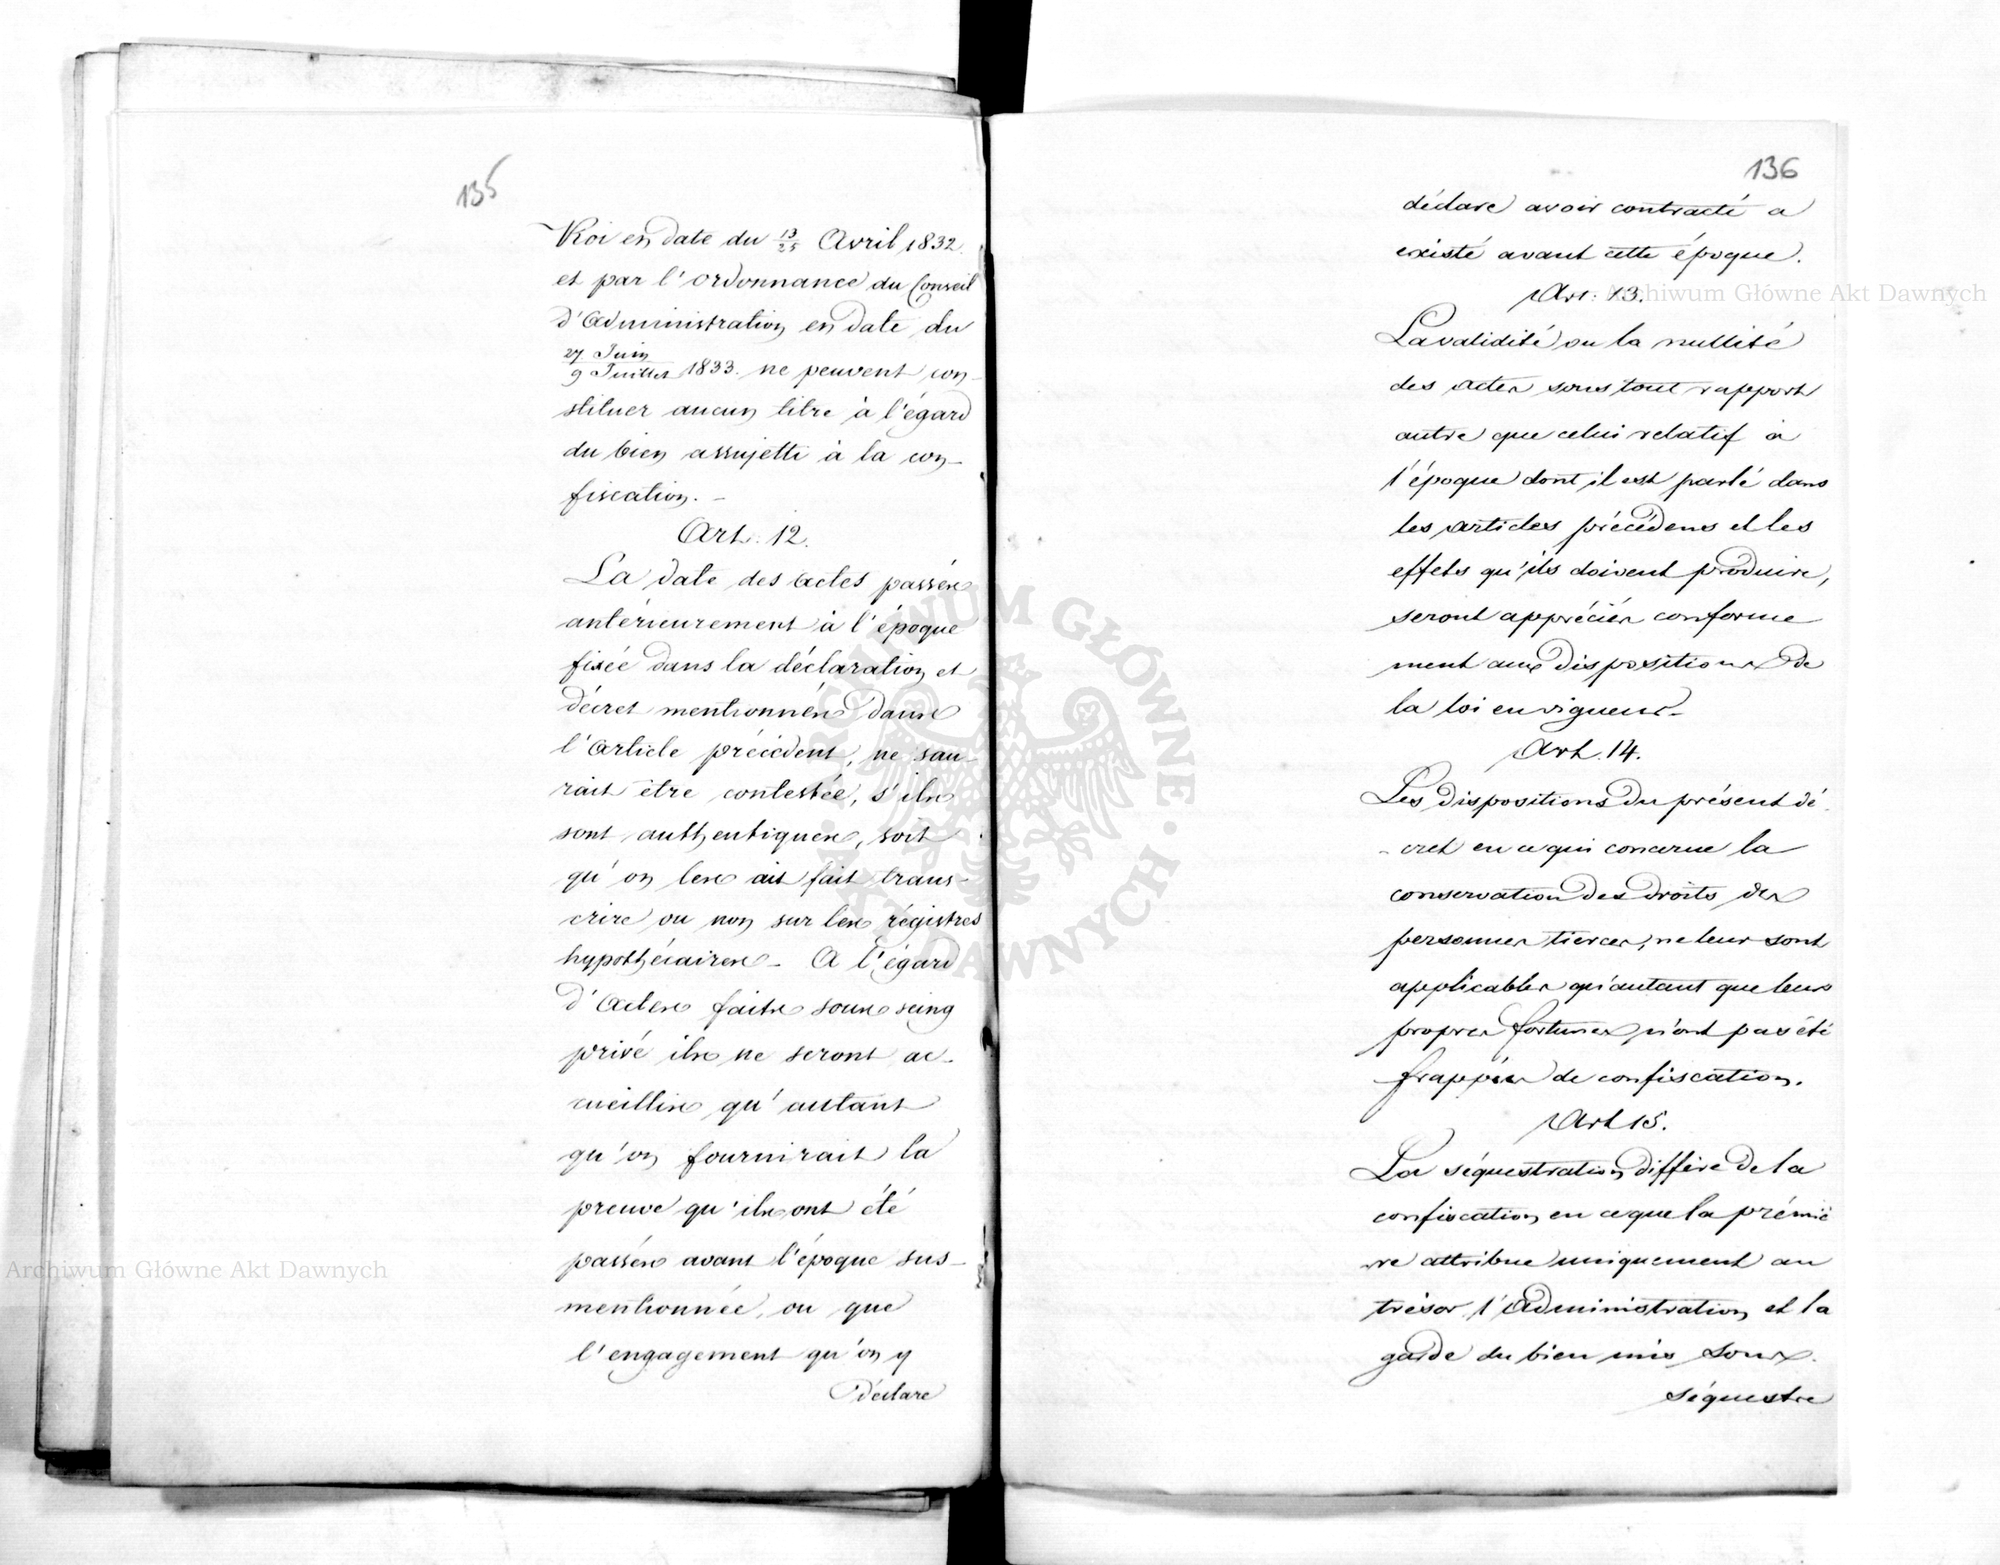 135
Roi en date du 13/25 Avril 1832.
et par l'ordonnance du Conseil
d'Administration en date du
27 Juin/9 Juillet 1833. ne peuvent con-
stituer aucun titre à l'égard
du bien assujetti à la con-
fiscation. -
Art. 12.
La date des actes passés
antérieurement à l'époque
fixée dans la déclaration et
décret mentionnés dans
l'Article précédent, ne sau-
rait être contestée, s'ils
sont authentiques, soit
qu'on les ait fait trans-
crire ou non sur les régistres
hypothécaires - A l'égard
d'Actes faits sous seing
privé ils ne seront ac-
cueillis qu'autant
qu'on fournirait la
preuve qu'ils ont été
passés avant l'époque sus-
mentionnée, ou que
l'engagement qu'on y
déclare
136
déclare avoir contracté a
existé avant cette époque.
Art. 13.
La validité ou la nullité
des actes sous tout rapport
autre que celui relatif à
l'époque dont il est parlé dans
les articles précédens et les
effets qu'ils doivent produire,
seront appréciés conforme
ment aux dispositions de
la loi en vigueur -
Art. 14.
Les dispositions du présent dé-
- cret en ce qui concerne la
conservation des droits des
personnes tierces, ne leur sont
applicables qu'autant que leurs
propres fortunes n'ont pas été
frappées de confiscation.
Art 15.
La séquestration diffère de la
confiscation en ce que la prémiè
re attribue uniquement au
trésor l'Administration et la
garde du bien mis sous.
séquestre
Archiwum Główne Akt Dawnych
Archiwum Główne Akt Dawnych
ARCHIWUM GŁÓWNE · AKT DAWNYCH ·